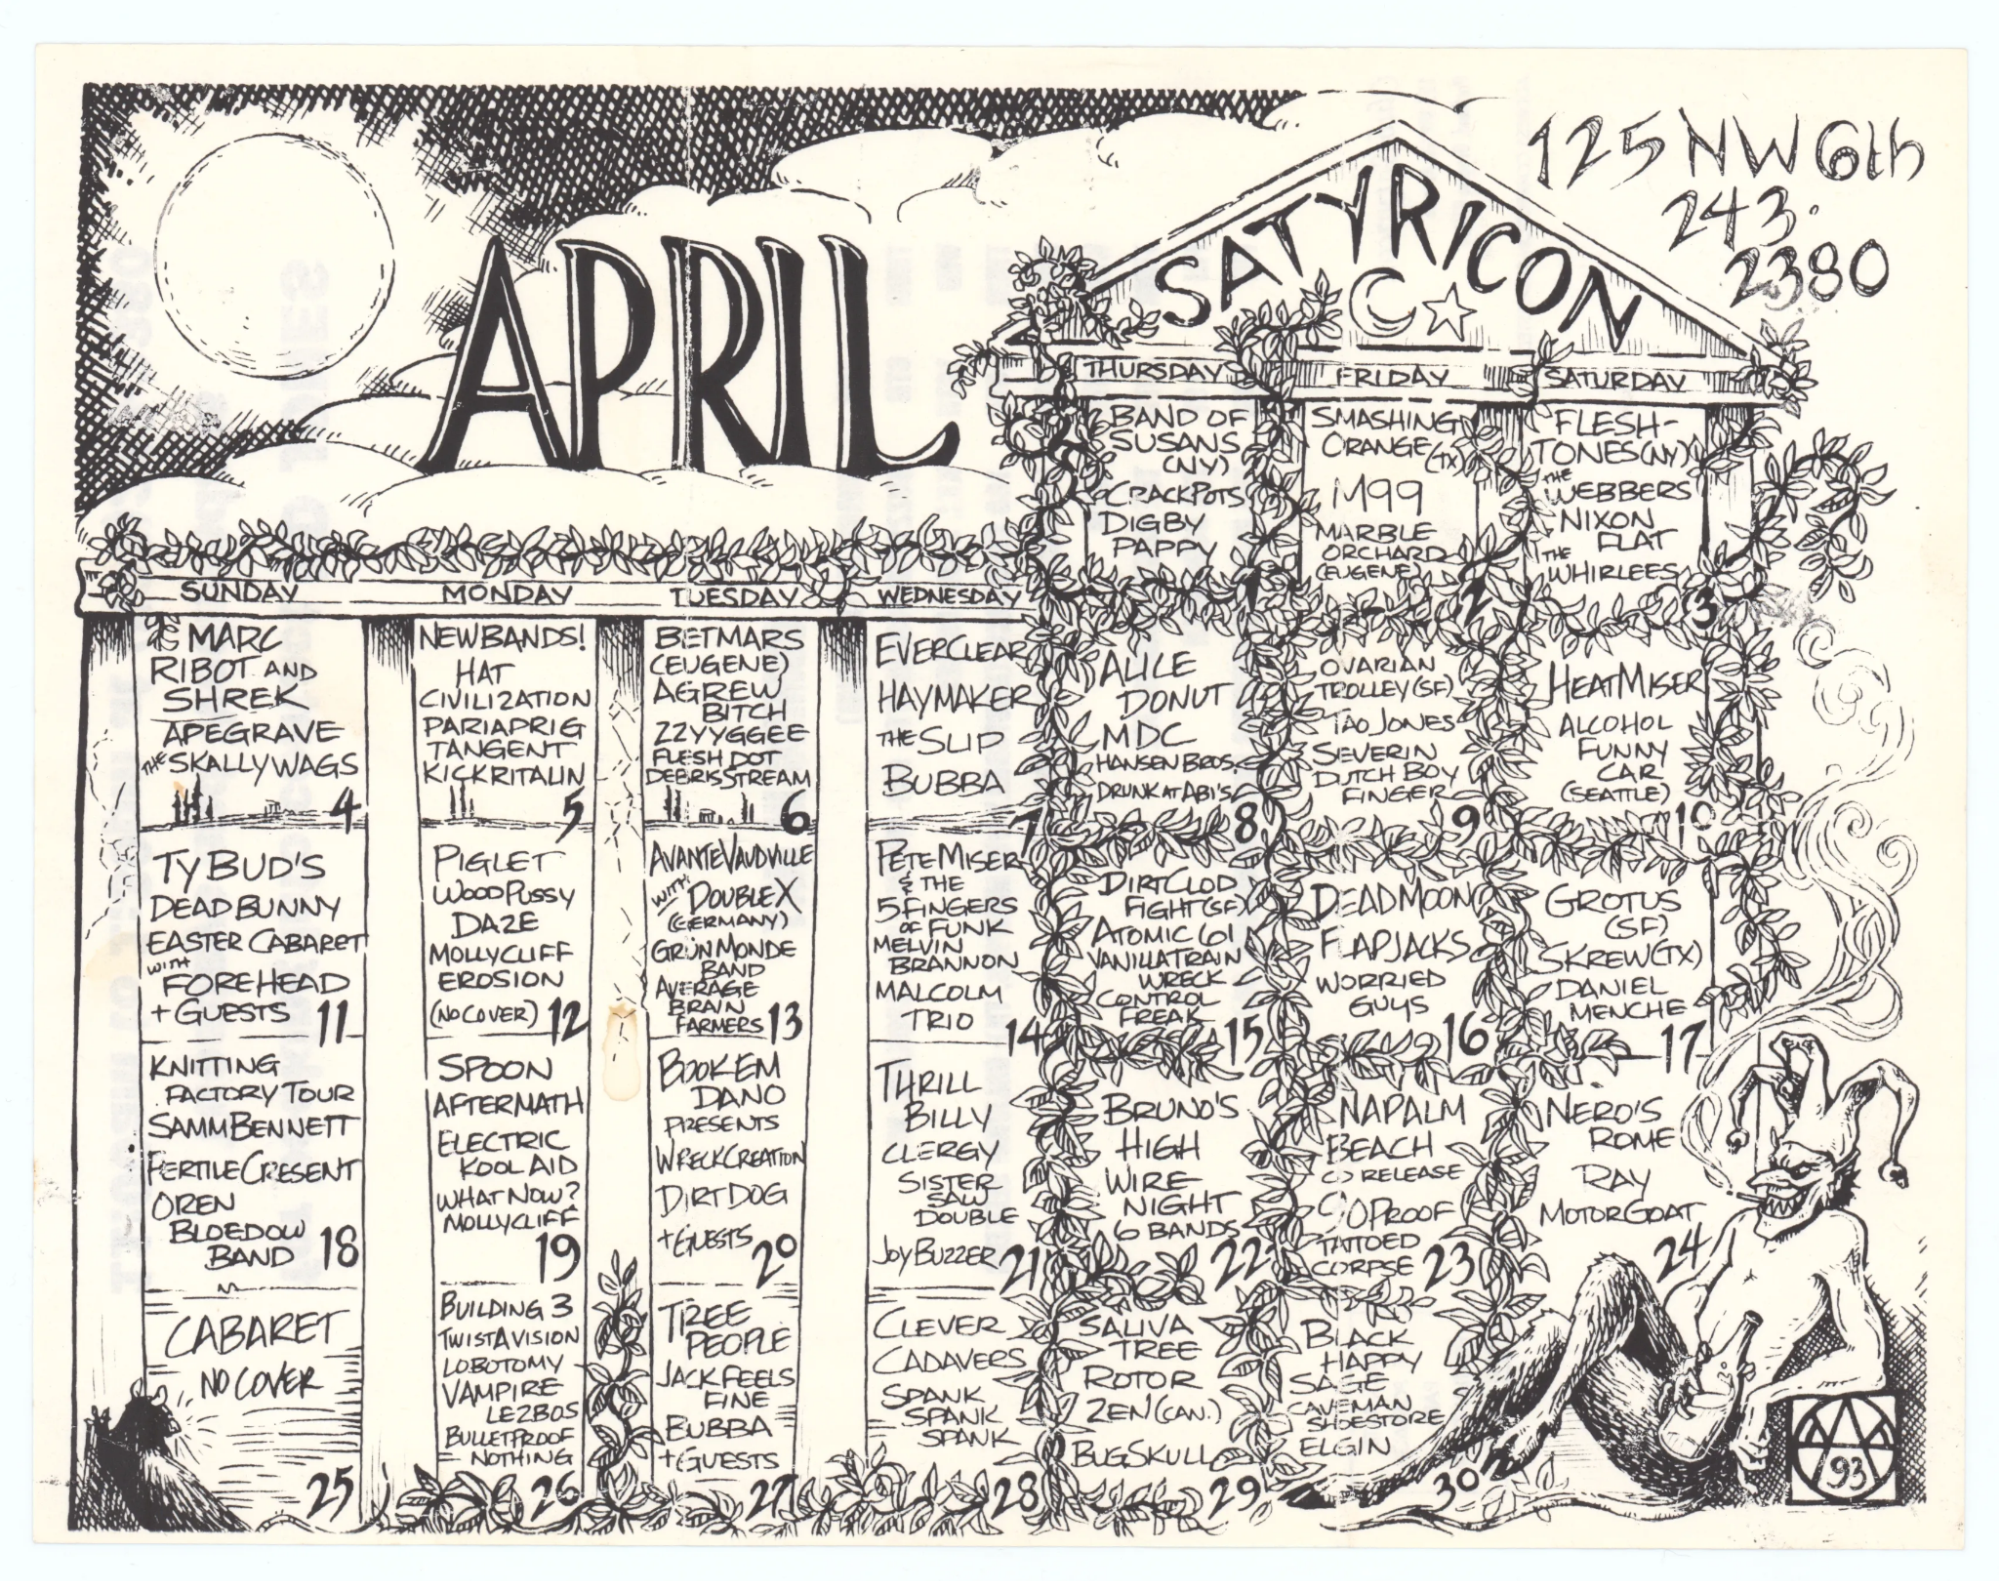 APRIL
125 NW 6th
243.
2380
SATYRICON
THURSDAY
FRIDAY
SATURDAY
BAND OF
SUSANS
(NY)
CRACKPOTS
DIGBY
PAPPY
1
SMASHING
ORANGE (TX)
M99
MARBLE
ORCHARD
(EUGENE)
2
FLESH-
TONES (NY)
THE
WEBBERS
NIXON
FLAT
THE
WHIRLEES
3
SUNDAY
MONDAY
TUESDAY
WEDNESDAY
MARC
RIBOT AND
SHREK
APEGRAVE
THE SKALLYWAGS
4
NEW BANDS!
HAT
CIVILIZATION
PARIAPRIG
TANGENT
KICKRITALIN
5
BETMARS
(EUGENE)
AGREW
BITCH
ZZYYGGEE
FLESH DOT
DEBRISSTREAM
6
EVERCLEAR
HAYMAKER
THE SLIP
BUBBA
7
ALICE
DONUT
MDC
HANSEN BROS.
DRUNK AT ABI'S
8
OVARIAN
TROLLEY (SF)
TAO JONES
SEVERIN
DUTCH BOY
FINGER
9
HEATMISER
ALCOHOL
FUNNY
CAR
(SEATTLE)
10
TY BUD'S
DEAD BUNNY
EASTER CABARET
WITH
FOREHEAD
+ GUESTS
11
PIGLET
WOODPUSSY
DAZE
MOLLYCLIFF
EROSION
(NO COVER)
12
AVANTE VAUDVILLE
WITH DOUBLE X
(GERMANY)
GRÜN MONDE
BAND
AVERAGE
BRAIN
FARMERS
13
PETE MISER
& THE
5 FINGERS
OF FUNK
MELVIN
BRANNON
MALCOLM
TRIO
14
DIRT CLOD
FIGHT (SF)
ATOMIC 61
VANILLA TRAIN
WRECK
CONTROL
FREAK
15
DEAD MOON
FLAPJACKS
WORRIED
GUYS
16
GROTUS
(SF)
SKREW (TX)
DANIEL
MENCHE
17
KNITTING
FACTORY TOUR
SAMM BENNETT
FERTILE CRESENT
OREN
BLOEDOW
BAND
18
SPOON
AFTERMATH
ELECTRIC
KOOL AID
WHAT NOW?
MOLLYCLIFF
19
BOOK EM
DANO
PRESENTS
WRECKCREATION
DIRT DOG
+ GUESTS
20
THRILL
BILLY
CLERGY
SISTER
SAW
DOUBLE
JOY BUZZER
21
BRUNO'S
HIGH
WIRE
NIGHT
6 BANDS
22
NAPALM
BEACH
CD RELEASE
90 PROOF
TATTOED
CORPSE
23
NERO'S
ROME
RAY
MOTORGOAT
24
CABARET
NO COVER
25
BUILDING 3
TWISTAVISION
LOBOTOMY
VAMPIRE
LEZBOS
BULLETPROOF
NOTHING
26
TREE
PEOPLE
JACK FEELS
FINE
BUBBA
+ GUESTS
27
CLEVER
CADAVERS
SPANK
SPANK
SPANK
28
SALIVA
TREE
ROTOR
ZEN (CAN.)
BUGSKULL
29
BLACK
HAPPY
SAGE
CAVEMAN
SHOESTORE
ELGIN
30
93